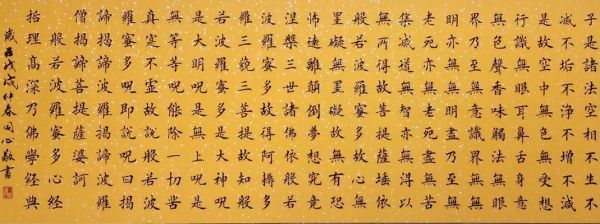 子是諸法空相不生不
滅不垢不淨不增不減
是故空中無色無受想
行識無眼耳鼻舌身意
無色聲香味觸法無眼
界乃至無意識界無無
明亦無無明盡乃至無
老死亦無老死盡無苦
集滅道無智亦無得以
無所得故菩提薩埵依
般若波羅蜜多故心無
罣礙無罣礙故無有恐
怖遠離顛倒夢想究竟
涅槃三世諸佛依般若
波羅蜜多故得阿耨多
羅三藐三菩提故知般
若波羅蜜多是大神呪
是大明呪是無上呪是
無等等呪能除一切苦
真實不虛故說般若波
羅蜜多呪即說呪曰揭
諦揭諦波羅揭諦波羅
僧揭諦菩提薩婆訶
般若波羅蜜多心經
括理高深乃佛學經典
歲在戊戌仲春同心敬書